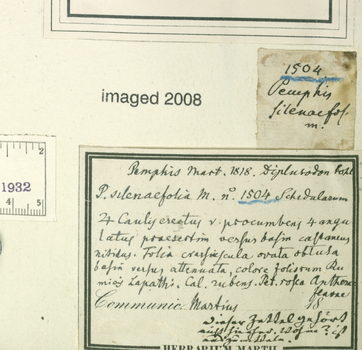 1504
Pemphis
silenaefol.
m.
imaged 2008
1932
Pemphis Mart. 1818. Diplusodon Pohl
P. silenaefolia M. nº 1504 Schedularum
24 Caulis erectus v. procumbens 4 angu
latus praesertim versus basin castaneus
nitidus. Folia crassiuscula ovata obtusa
basin versus attenuata, colore foliorum Ru
micis Lapathi. Cal. rubens. Pet. rosea Antherae
flavae
Communic. Martius
Dieser Zettel gehört
HERBARIUM MARTII